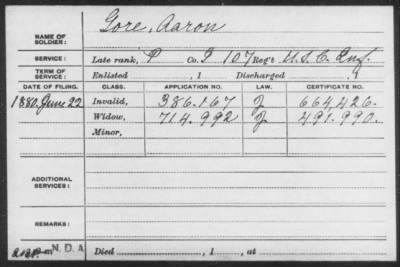 Gore, Aaron
NAME OF SOLDIER:
SERVICE: Late rank, P Co. I 107 Reg't U.S.C. Inf.
TERM OF SERVICE: Enlisted , 1 Discharged , 1
DATE OF FILING. CLASS. APPLICATION NO. LAW. CERTIFICATE NO.
1880. June 22 Invalid, 386.167 J 664,426.
Widow, 714.992 J 491.990.
Minor,
ADDITIONAL SERVICES:
REMARKS:
N.D.A
Died , 1 , at